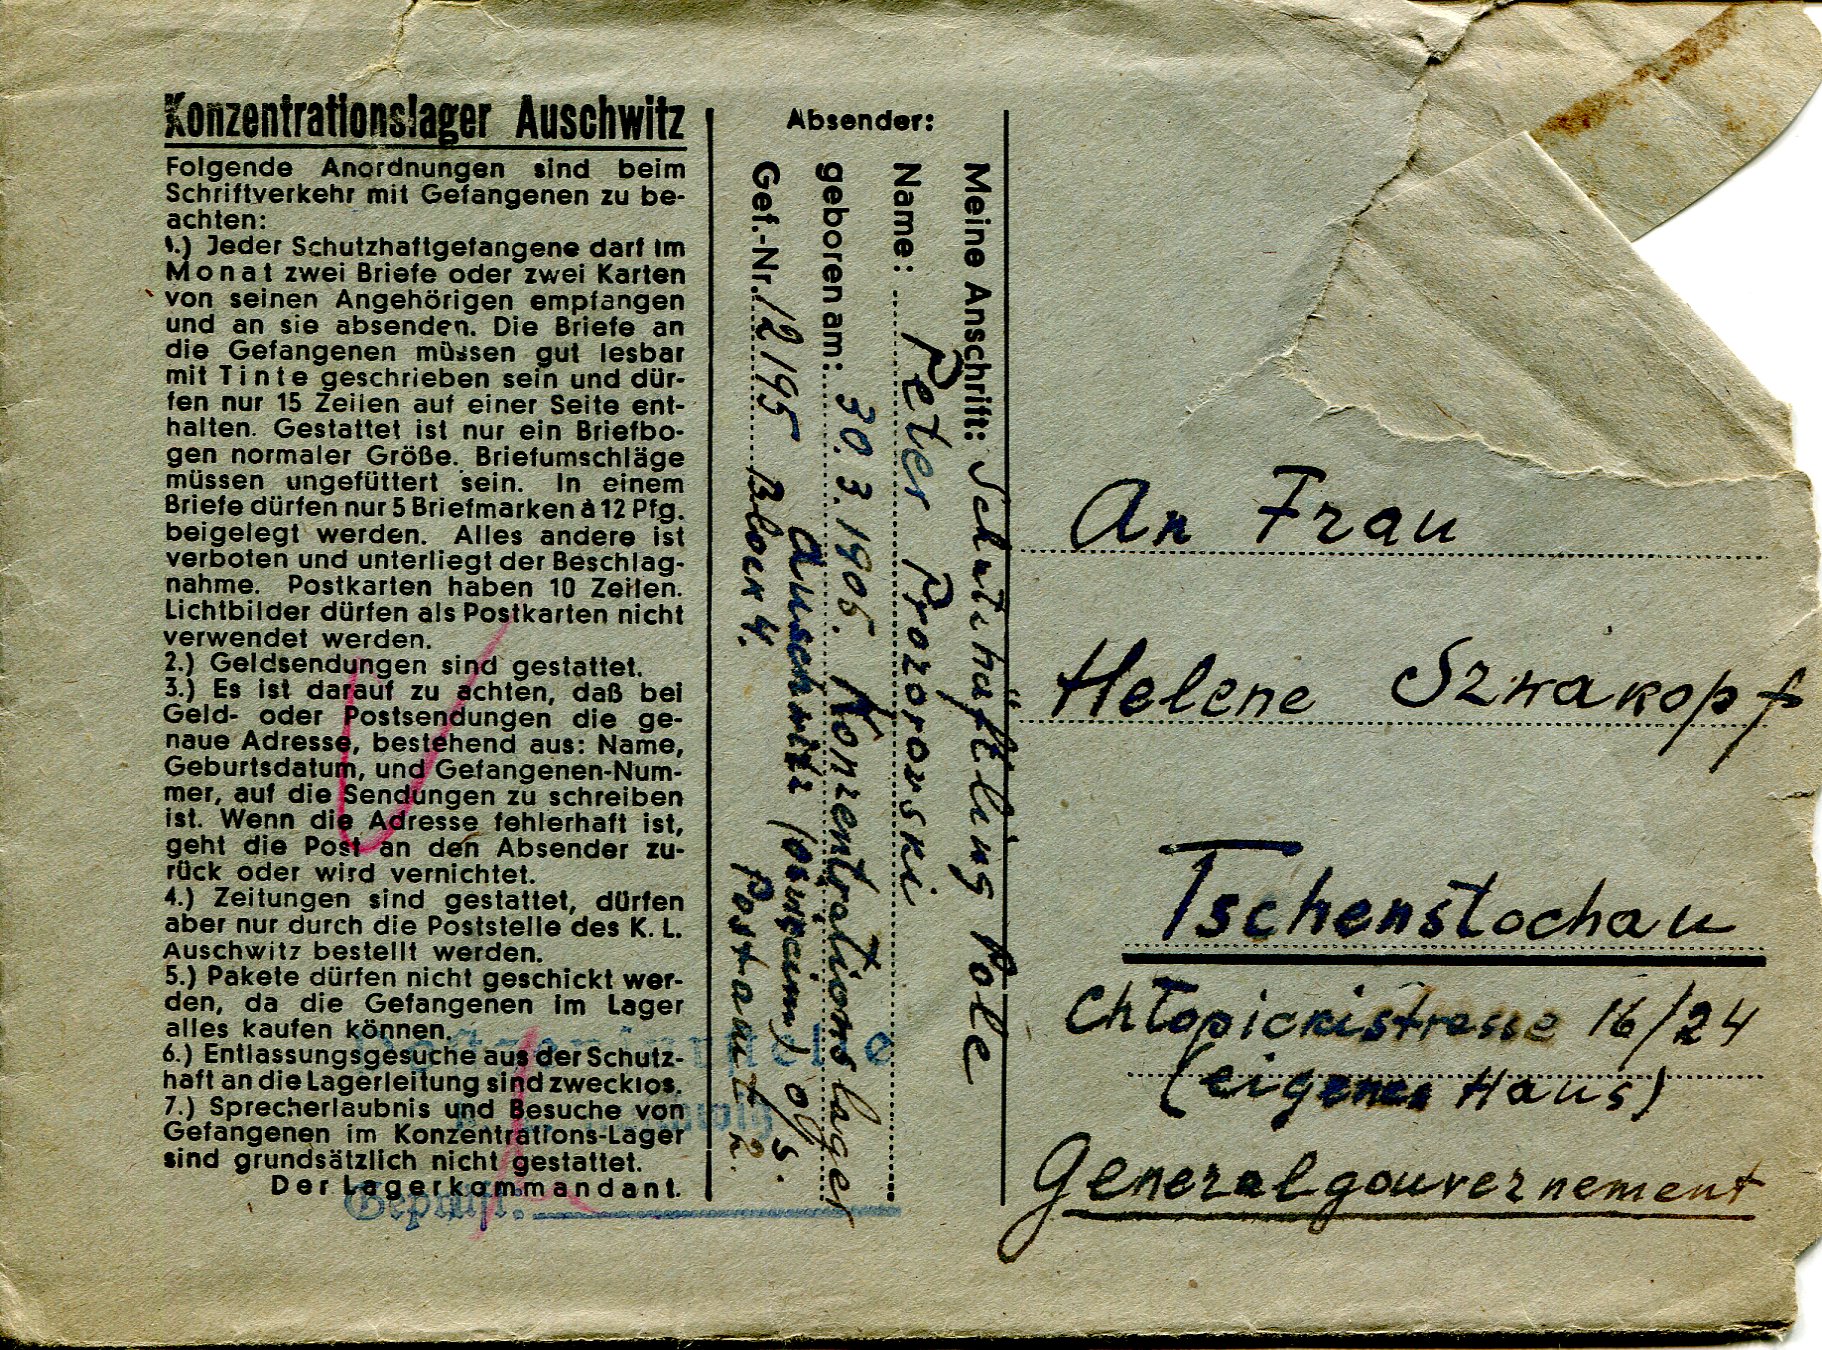 Konzentrationslager Auschwitz
Folgende Anordnungen sind beim
Schriftverkehr mit Gefangenen zu be-
achten:
1.) Jeder Schutzhaftgefangene darf im
Monat zwei Briefe oder zwei Karten
von seinen Angehörigen empfangen
und an sie absenden. Die Briefe an
die Gefangenen müssen gut lesbar
mit Tinte geschrieben sein und dür-
fen nur 15 Zeilen auf einer Seite ent-
halten. Gestattet ist nur ein Briefbo-
gen normaler Größe. Briefumschläge
müssen ungefüttert sein. In einem
Briefe dürfen nur 5 Briefmarken à 12 Pfg.
beigelegt werden. Alles andere ist
verboten und unterliegt der Beschlag-
nahme. Postkarten haben 10 Zeilen.
Lichtbilder dürfen als Postkarten nicht
verwendet werden.
2.) Geldsendungen sind gestattet.
3.) Es ist darauf zu achten, daß bei
Geld- oder Postsendungen die ge-
naue Adresse, bestehend aus: Name,
Geburtsdatum, und Gefangenen-Num-
mer, auf die Sendungen zu schreiben
ist. Wenn die Adresse fehlerhaft ist,
geht die Post an den Absender zu-
rück oder wird vernichtet.
4.) Zeitungen sind gestattet, dürfen
aber nur durch die Poststelle des K. L.
Auschwitz bestellt werden.
5.) Pakete dürfen nicht geschickt wer-
den, da die Gefangenen im Lager
alles kaufen können.
6.) Entlassungsgesuche aus der Schutz-
haft an die Lagerleitung sind zwecklos.
7.) Sprecherlaubnis und Besuche von
Gefangenen im Konzentrations-Lager
sind grundsätzlich nicht gestattet.
Der Lagerkommandant.
Geprüft:
Absender:
Meine Anschrift: Schutzhäftling Pole
Name: Peter Prozorowski
geboren am: 30.3.1905. Konzentrationslager
Auschwitz (Oświęcim) O/S.
Gef.-Nr. 12195 Block 4.
Postamt 2.
An Frau
Helene Szwakopf
Tschenstochau
Chłopickistrasse 16/24
(eigenes Haus)
Generalgouvernement